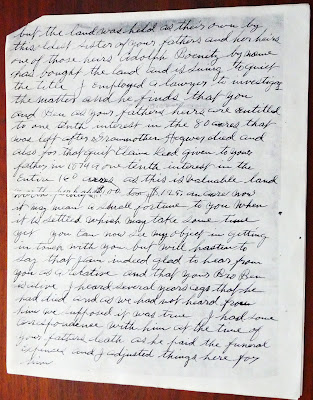 but the land was held as their own by
this last sister of your fathers and her heirs
one of those heirs Adolph by name
has bought the land and is suing to quiet
the title I employed a lawyer to investigate
the matter and he finds that you
and Ben as your fathers heirs are entitled
to one tenth interest in the 80 acres that
was left after Grandmother died and
also for that quit claim deed given to your
father in 1874 one tenth interest in the
Entire 160 acres as this is valuable land
over there being worth perhaps $100 to $125. an acre now
it may mean a small fortune to you When
it is settled which may take some time
yet you can now see my object in getting
in touch with you but will hasten to
say that I am indeed glad to hear from
you as a relative and that your Bro Ben
is alive I heard several years ago that he
had died and as we had not heard from
him we supposed it was true I had some
correspondence with him at the time of
your fathers death as he paid the funeral
expenses and I adjusted things here for
him